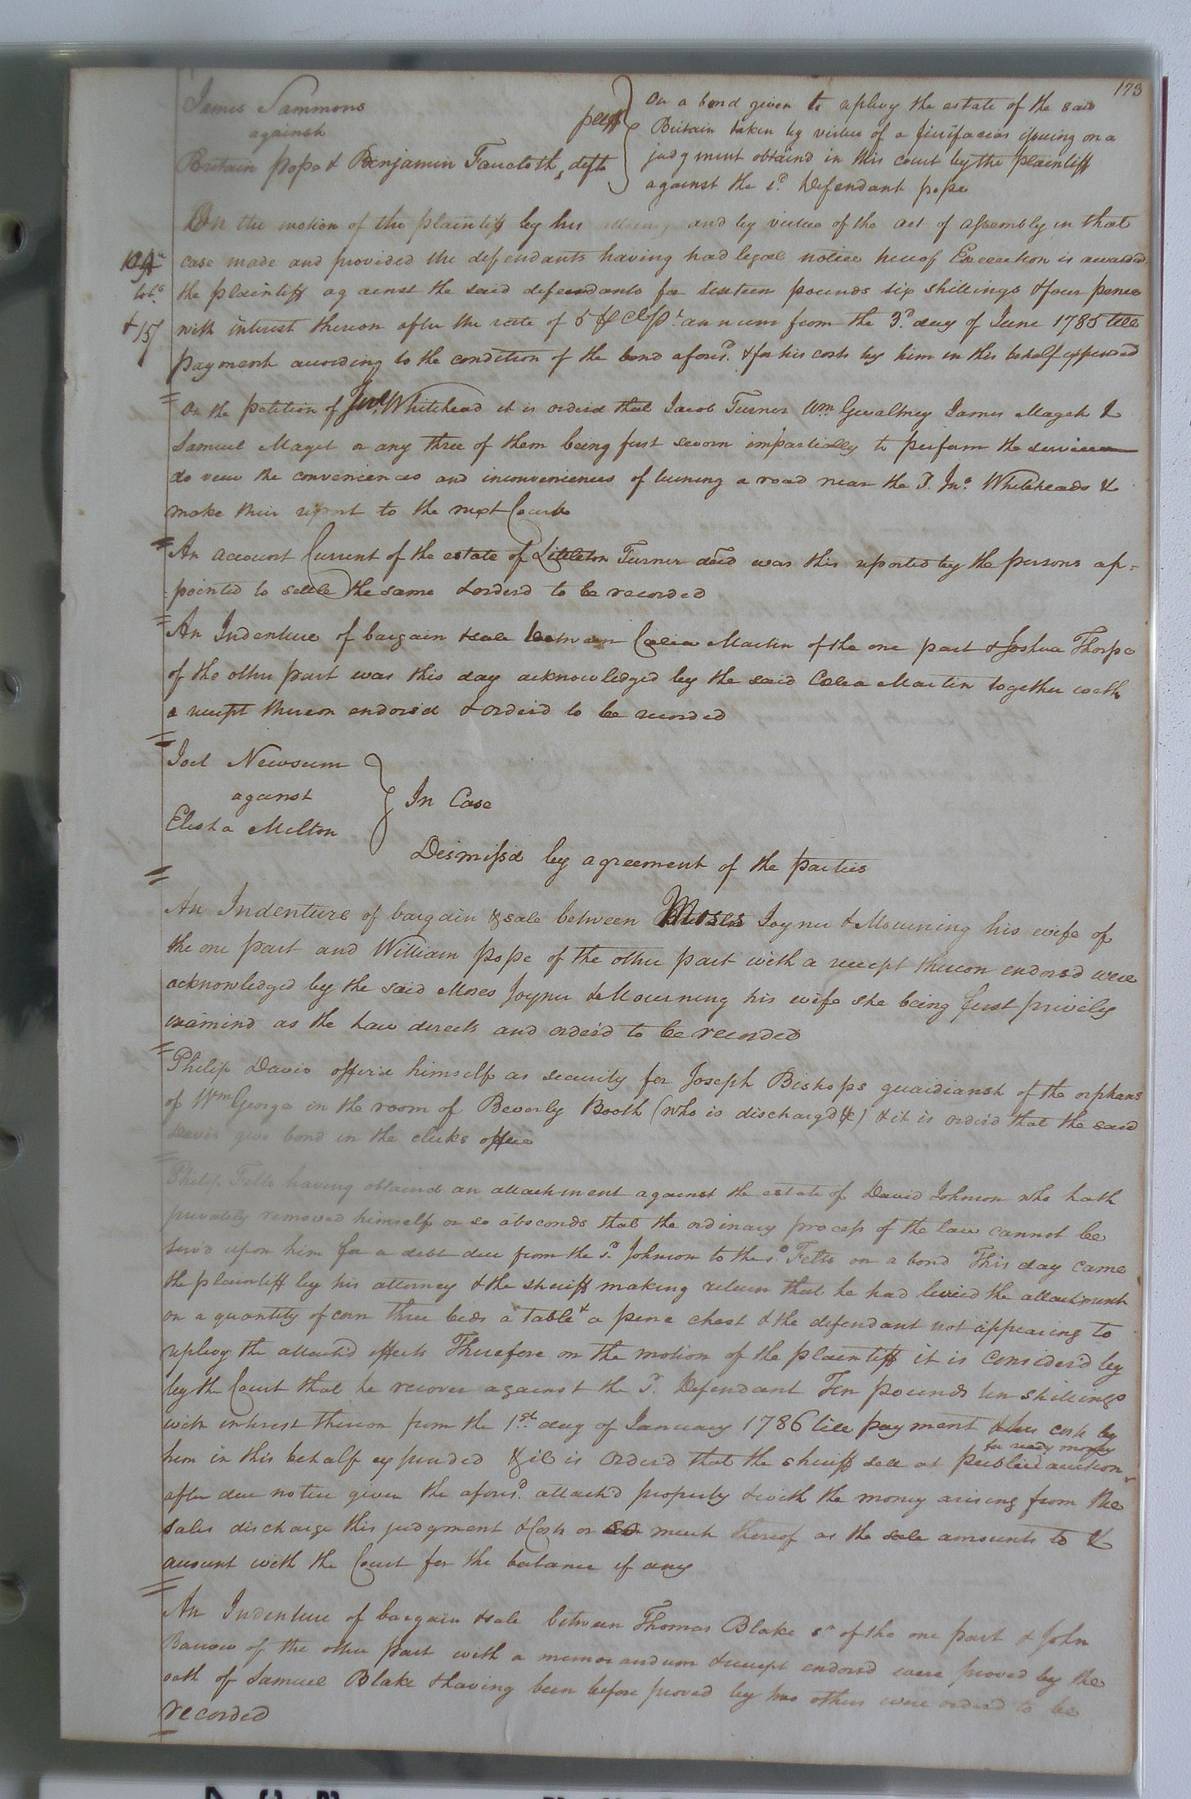 173
James Sammons plff
against
Britain pope & Benjamin Faucloth, defts
On a bond given to replevy the estate of the said
Britain taken by virtue of a firifacias issuing on a
judgment obtaind in this court by the plaintiff
against the sd Defendant pope
On the motion of the plaintiff by his attorney and by virtue of the act of assembly in that
case made and provided the defendants having had legal notice hereof Execution is awarded
the plaintiff against the said defendants for sixteen pounds six shillings & four pence
with interest thereon after the rate of 5 # Ct pr annum from the 3d day of June 1785 till
payment according to the condition of the bond aforesd. & for his costs by him in this behalf expended
& 15/
On the petition of Jno. Whitehead it is orderd that Jacob Turner Wm Gwaltney James Maget &
Samuel Maget or any three of them being first sworn impartially to perform the service
do view the conveniences and inconveniences of turning a road near the sd. Jno. Whiteheads &
make their report to the next Court
An account Current of the estate of Littleton Turner decd was this reported by the persons ap-
pointed to settle the same & orderd to be recorded
An Indenture of bargain & sale between Celia Martin of the one part & Joshua Thorpe
of the other part was this day acknowledged by the said Celia Martin together with
a receipt thereon endorsd & orderd to be recorded
Joel Newsum
against
Elisha Melton
In Case
Dismissd by agreement of the parties
An Indenture of bargain & sale between Moses Joyner & Mourning his wife of
the one part and William pope of the other part with a receipt thereon endorsd were
acknowledged by the said Moses Joyner & Mourning his wife she being first privily
examind as the Law directs and orderd to be recorded
Philip Davis offerd himself as security for Joseph Bishops guardiansh of the orphans
of Wm George in the room of Beverly Booth (who is dischargd &c) & it is orderd that the said
Davis give bond in the clerks office
Philip Felts having obtaind an attachment against the estate of David Johnson who hath
privately removed himself or so absconds that the ordinary process of the law cannot be
servd upon him for a debt due from the sd Johnson to the sd Felts on a bond This day came
the plaintiff by his attorney & the sheriff making return that he had levied the attachment
on a quantity of corn three beds a table & a pine chest & the defendant not appearing to
replevy the attachd effects Therefore on the motion of the plaintiff it is considerd by
by the Court that he recover against the sd. Defendant Ten pounds ten shillings
with interest thereon from the 1st day of January 1786 till payment & his costs by
him in this behalf expended & it is orderd that the sheriff sell at public auction for ready money
after due notice given the aforesd. attachd property & with the money arising from the
sales discharge this judgment & Costs or so much thereof as the sale amounts to &
account with the Court for the balance if any
An Indenture of bargain & sale between Thomas Blake sr of the one part & John
Barrow of the other part with a memorandum & receipt endorsd were proved by the
oath of Samuel Blake & having been before proved by two others were orderd to be
recorded